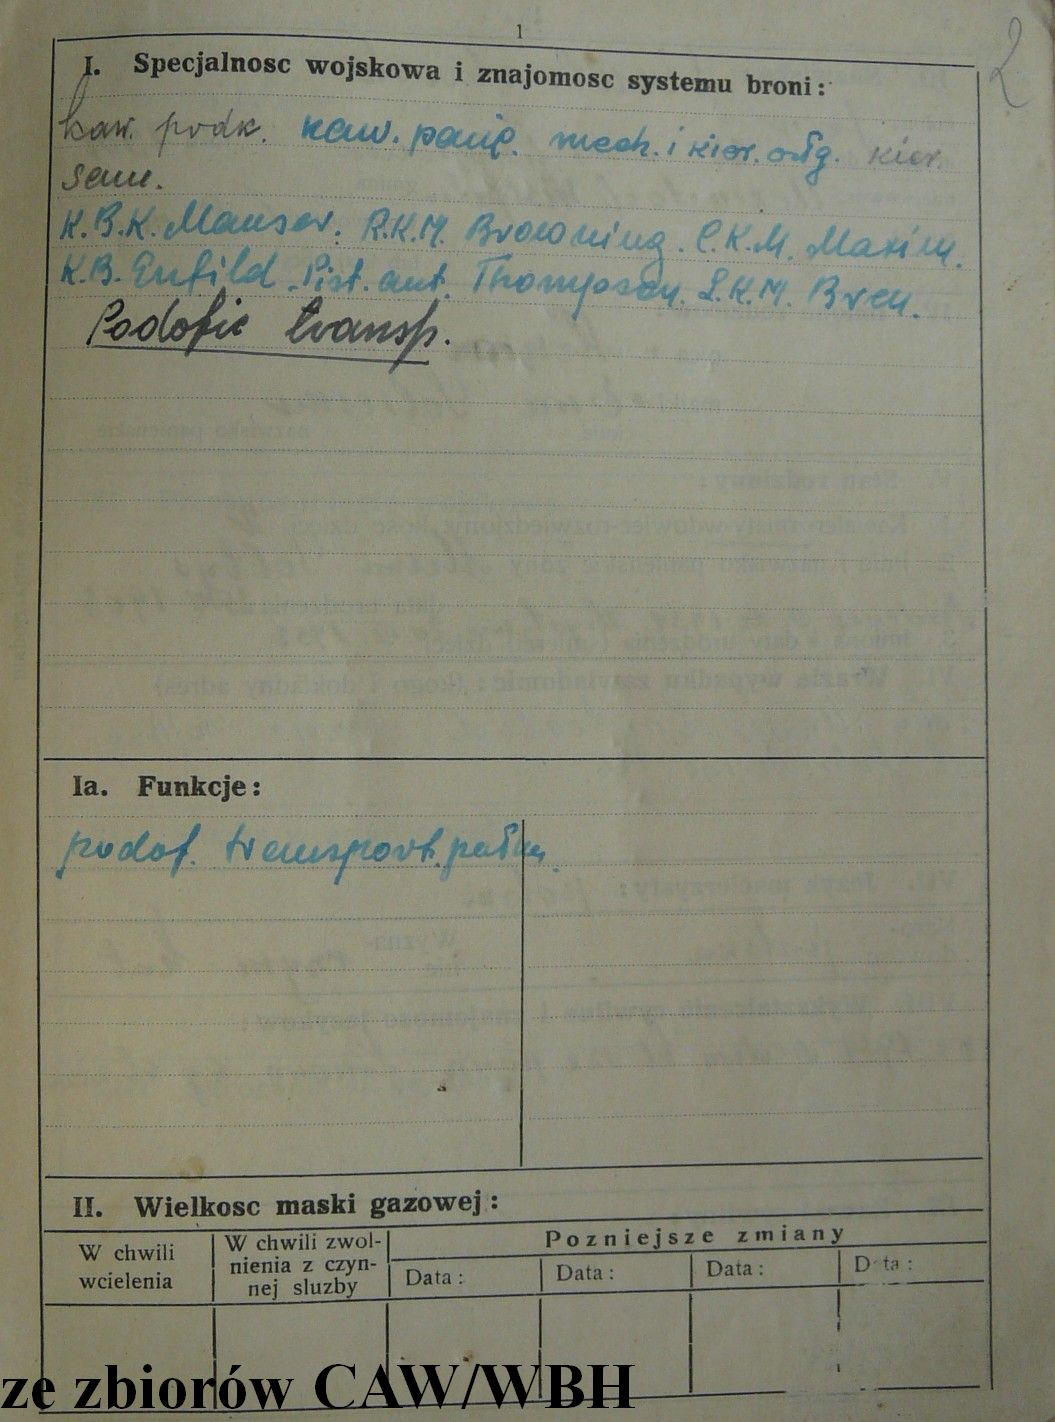 1
2
I. Specjalnosc wojskowa i znajomosc systemu broni:
kaw. podk. kaw. panc. mech. i kier. ciąg. kier.
sam.
K.B.K. Mauser. R.K.M. Browning. C.K.M. Maxim.
K.B. Enfild. Pist. aut. Thompson. L.K.M. Bren.
Podofic transp.
Ia. Funkcje:
podof. transport. pułku.
II. Wielkosc maski gazowej:
W chwili
wcielenia
W chwili zwol-
nienia z czyn-
nej sluzby
Pozniejsze zmiany
Data:
Data:
Data:
Data:
ze zbiorów CAW/WBH